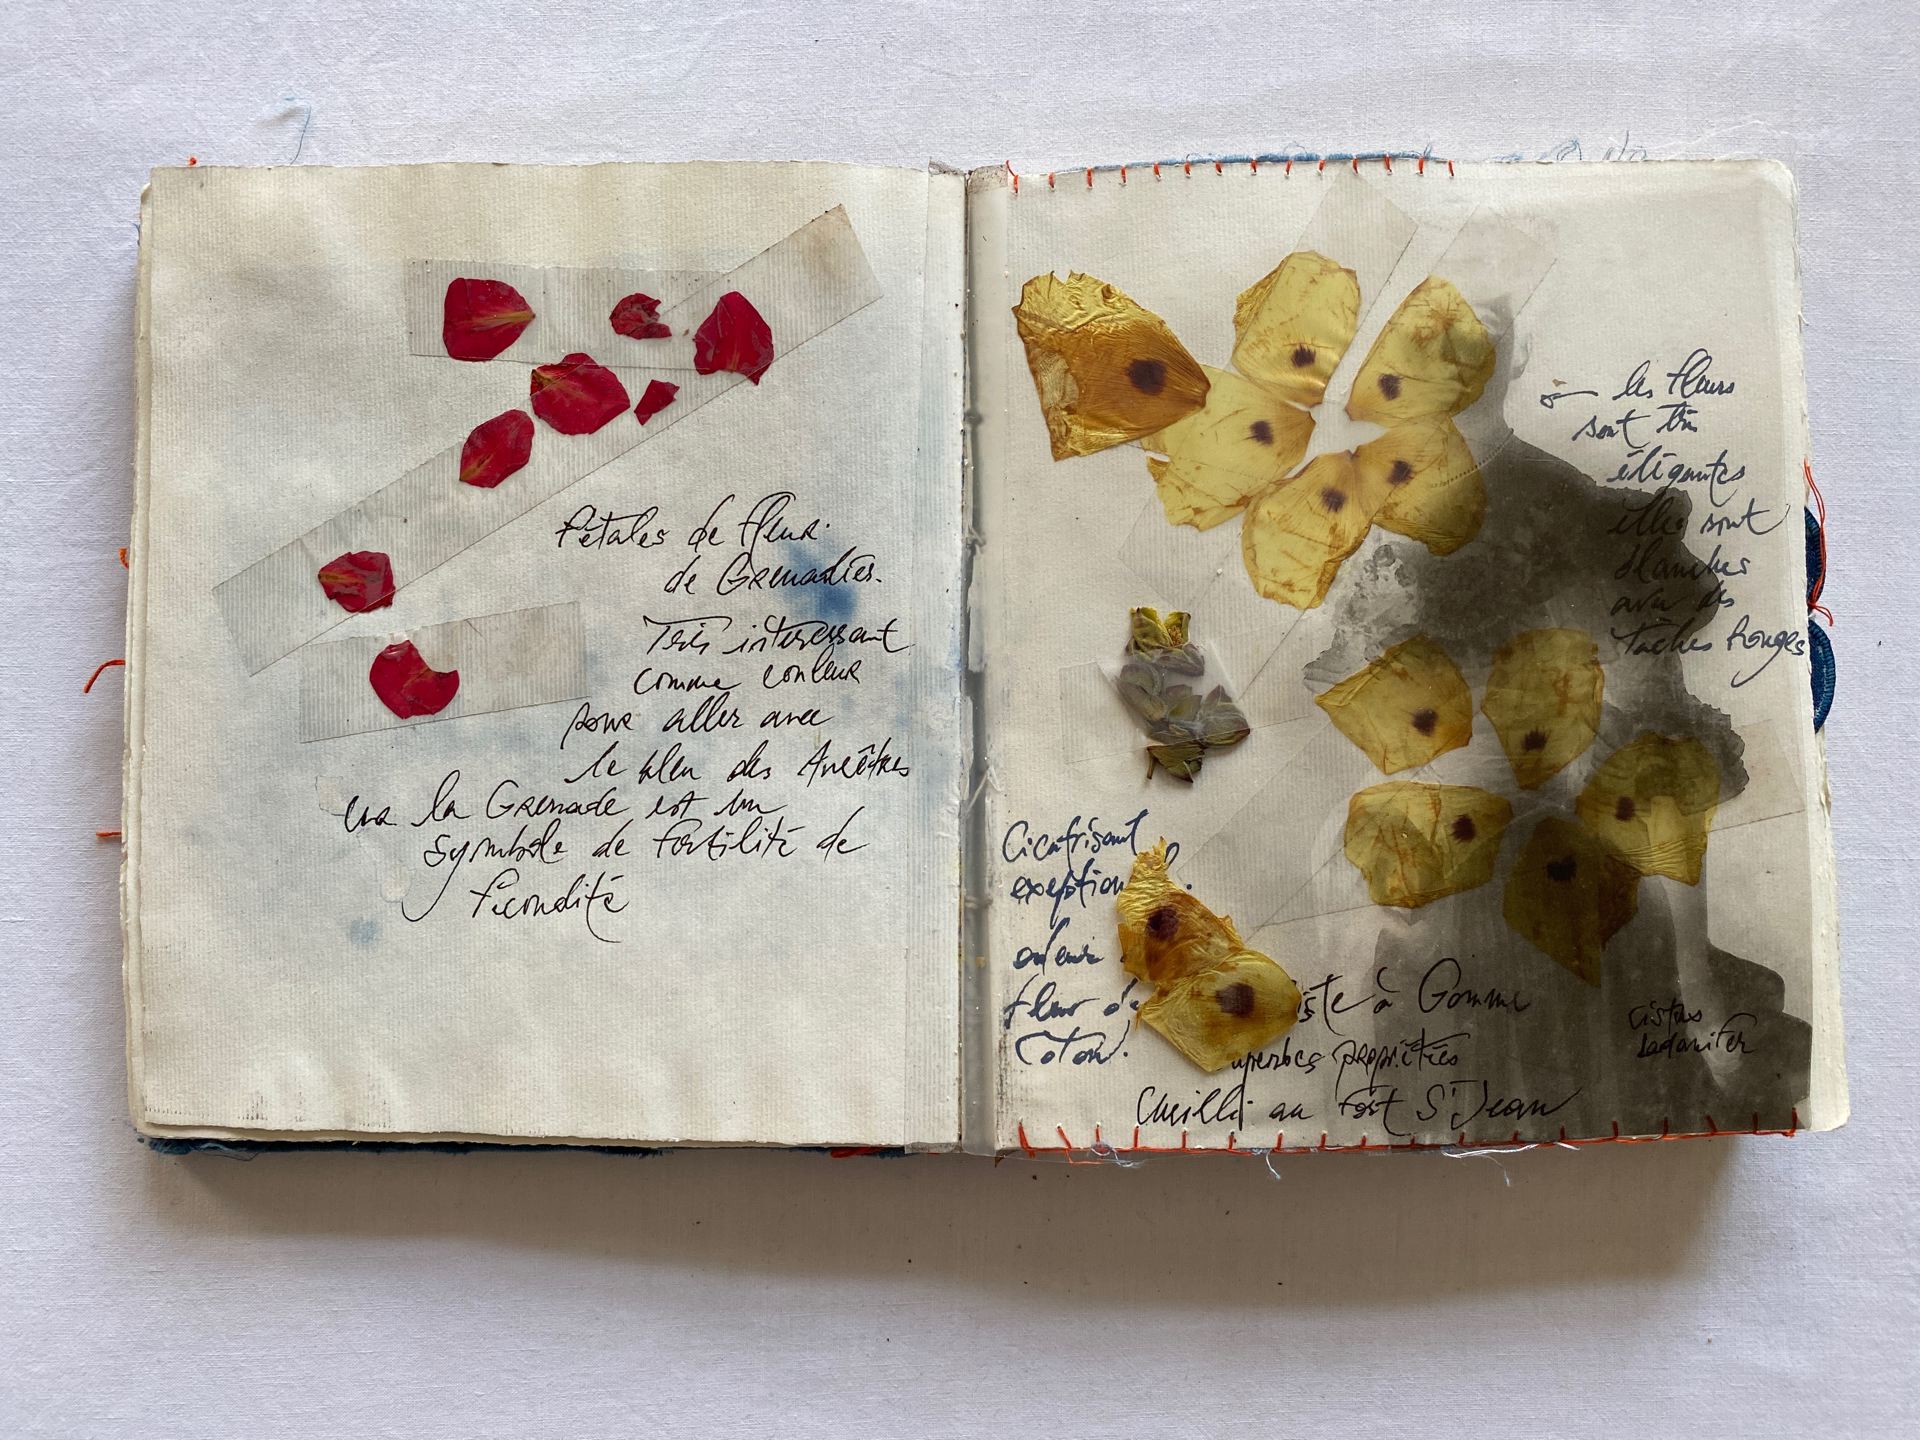 Pétales de fleur
de Grenadier.
Très interessant
comme couleur
pour aller avec
le bleu des Ancêtres
la Grenade est un
symbole de fertilité de
fécondité
les fleurs
sont très
élégantes
elles sont
blanches
avec des
taches Rouges
Cicatrisant
exeption
fleur de
Coton.
iste à Gomme
uperbes propriétés
Cueilli au Fort St Jean
cistus
ladanifer